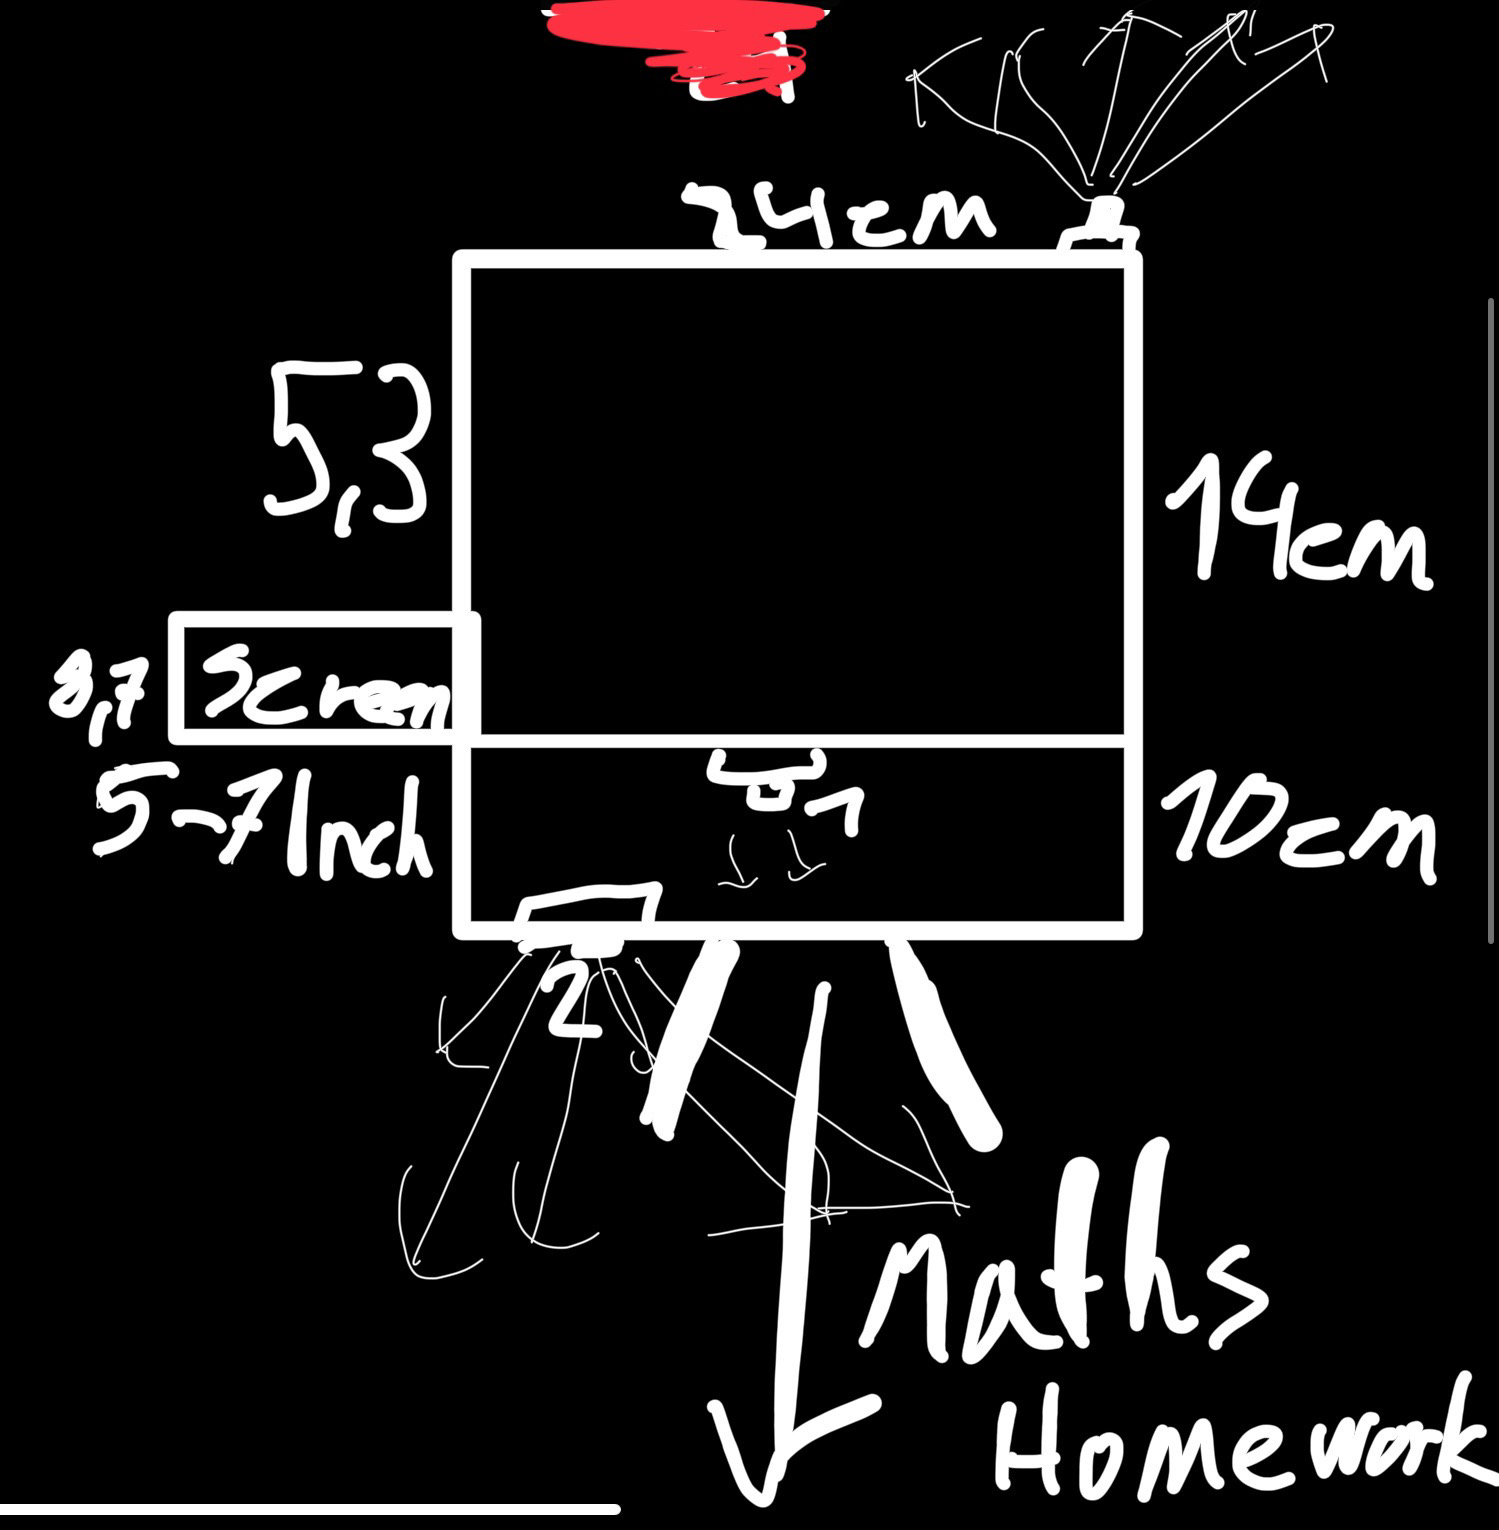 24cm
5,3
14cm
8,7
Screen
5-7 Inch
1
10cm
2
Maths
Homework